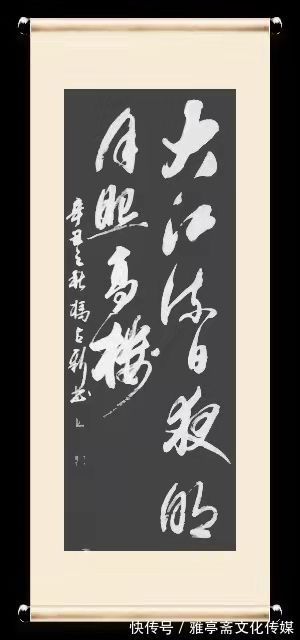 大江流日夜明
月照高樓
辛丑之秋
快传号 / 雅亭斋文化传媒